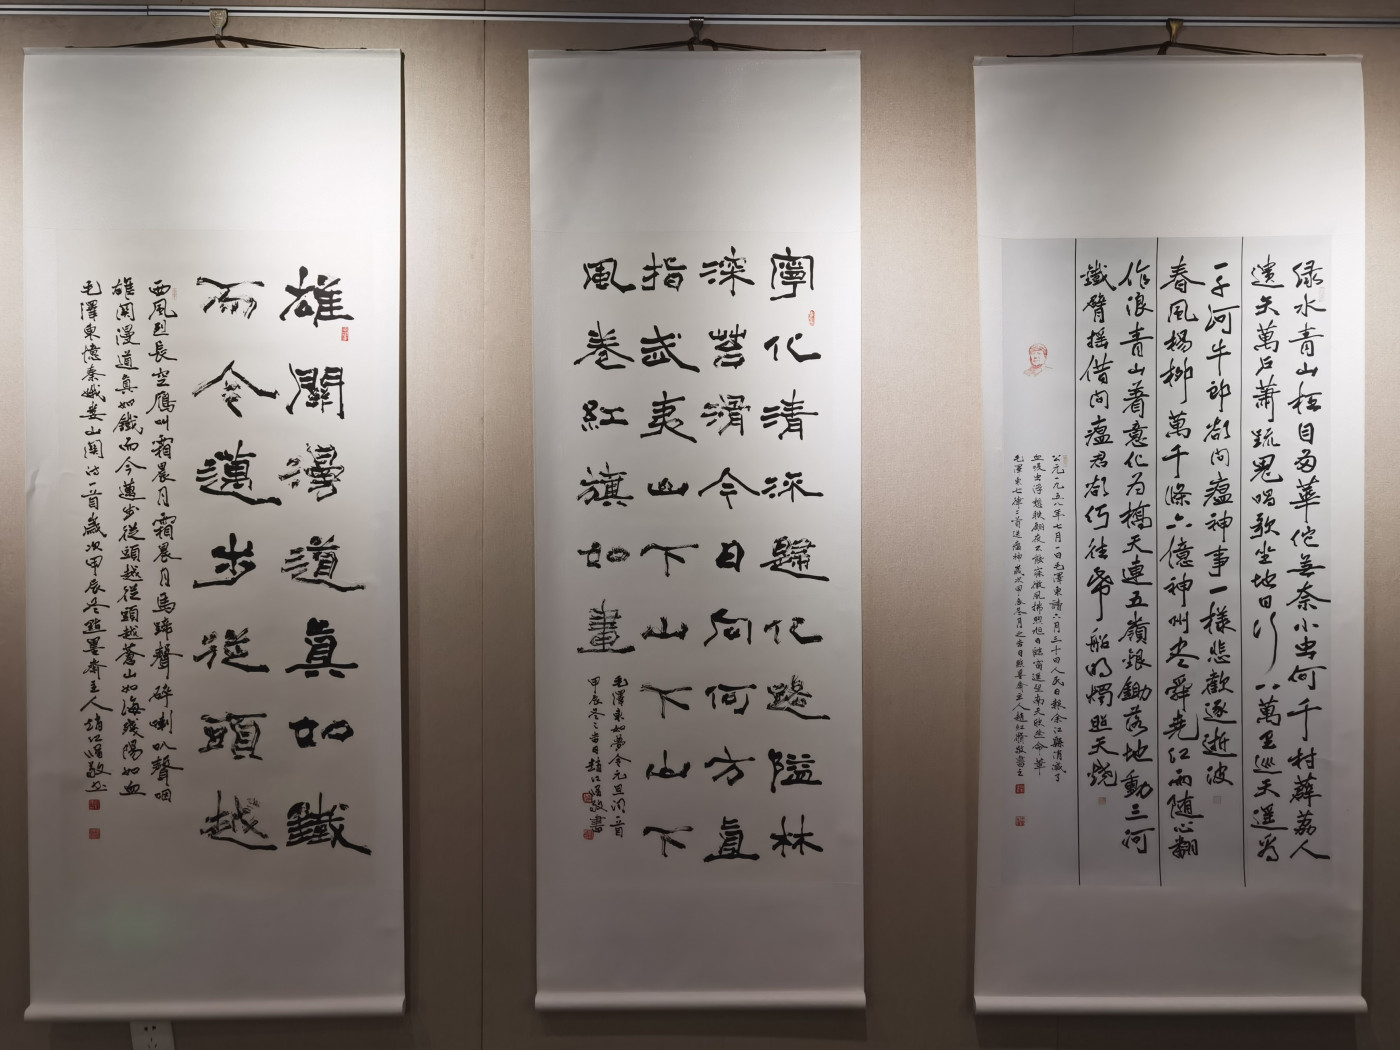 绿水青山枉自多華佗無奈小虫何千村薜荔人
遺矢萬戶蕭疏鬼唱歌坐地日行八萬里巡天遥看
一千河牛郎欲問瘟神事一樣悲歡逐逝波
春風楊柳萬千條六億神州盡舜堯紅雨随心翻
作浪青山著意化為橋天連五嶺銀鋤落地動三河
鐵臂摇借問瘟君欲何往紙船明燭照天燒
公元一九五八年七月一日毛澤東讀六月三十日人民日報余江縣消滅了
血吸虫浮想聯翩夜不能寐微風拂煦旭日臨窗遥望南天欣然命筆
毛澤東七律二首送瘟神歲次甲辰冬月之吉日
寧化清流歸化路隘林
深苔滑今日向何方直
指武夷山下山下山下
風卷紅旗如畫
毛澤東如夢令元旦一首
甲辰冬之吉日趙江濱敬書
雄關漫道真如鐵
而今邁步從頭越
西風烈長空雁叫霜晨月霜晨月馬蹄聲碎喇叭聲咽
雄關漫道真如鐵而今邁步從頭越從頭越蒼山如海殘陽如血
毛澤東憶秦娥婁山關詞一首歲次甲辰冬墨齋主人趙江濱敬書